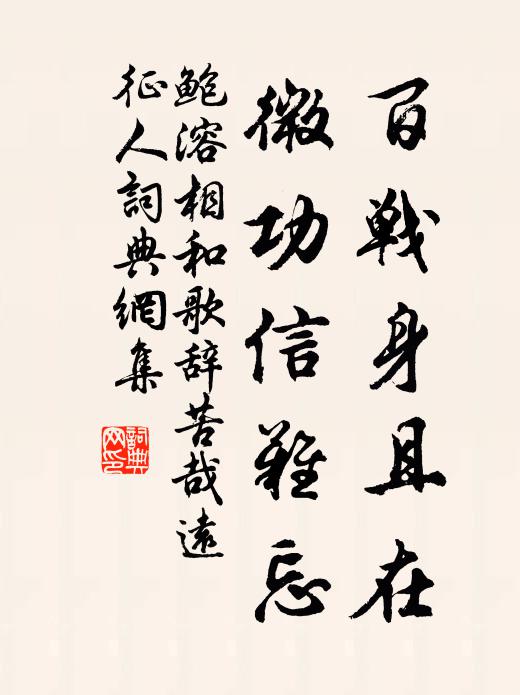 百戦身且在
微功信難忘
鲍溶相和歌辞苦哉遠
征人詞典網集
詞典
网印